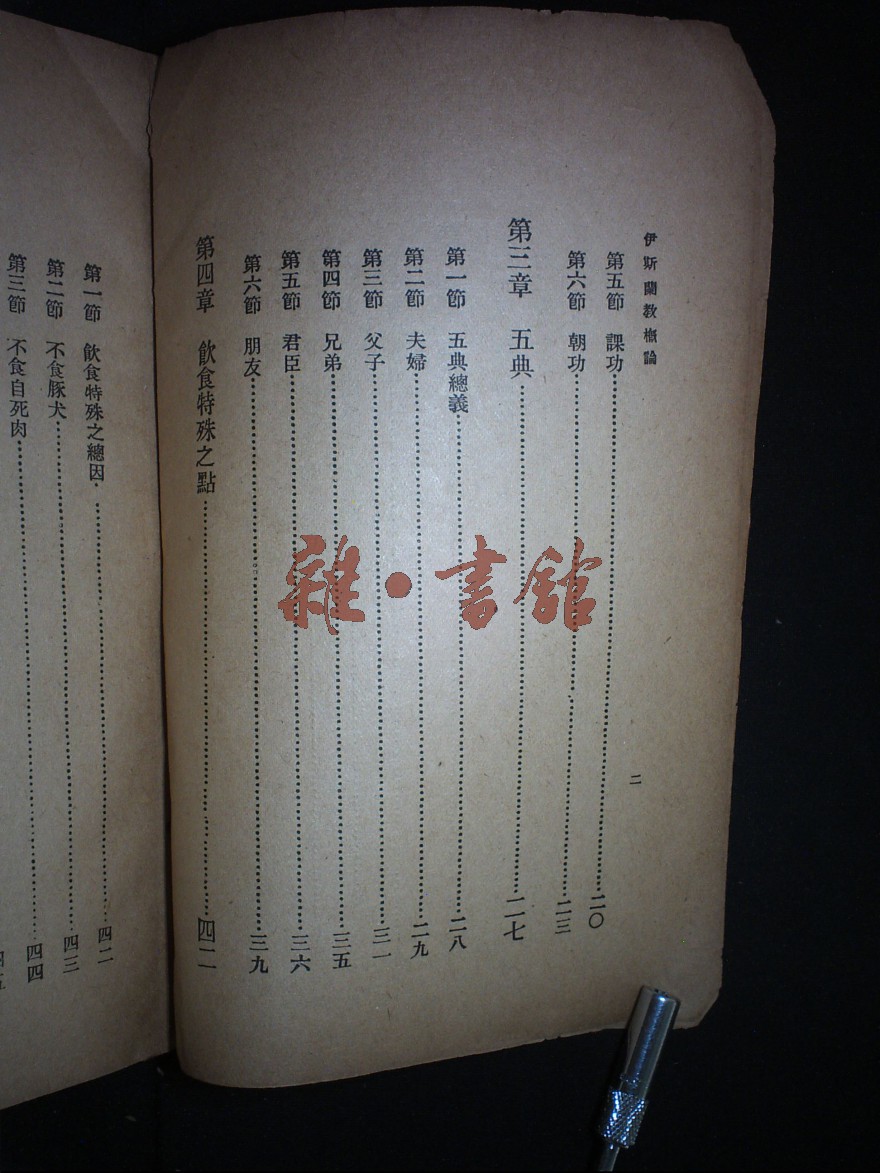 伊斯蘭教概論
二
第五節 課功 二〇
第六節 朝功 二三
第三章 五典 二七
第一節 五典總義 二八
第二節 夫婦 二九
第三節 父子 三一
第四節 兄弟 三五
第五節 君臣 三六
第六節 朋友 三九
第四章 飲食特殊之點 四二
第一節 飲食特殊之總因 四二
第二節 不食豚犬 四三
第三節 不食自死肉 四四
雜·書舘